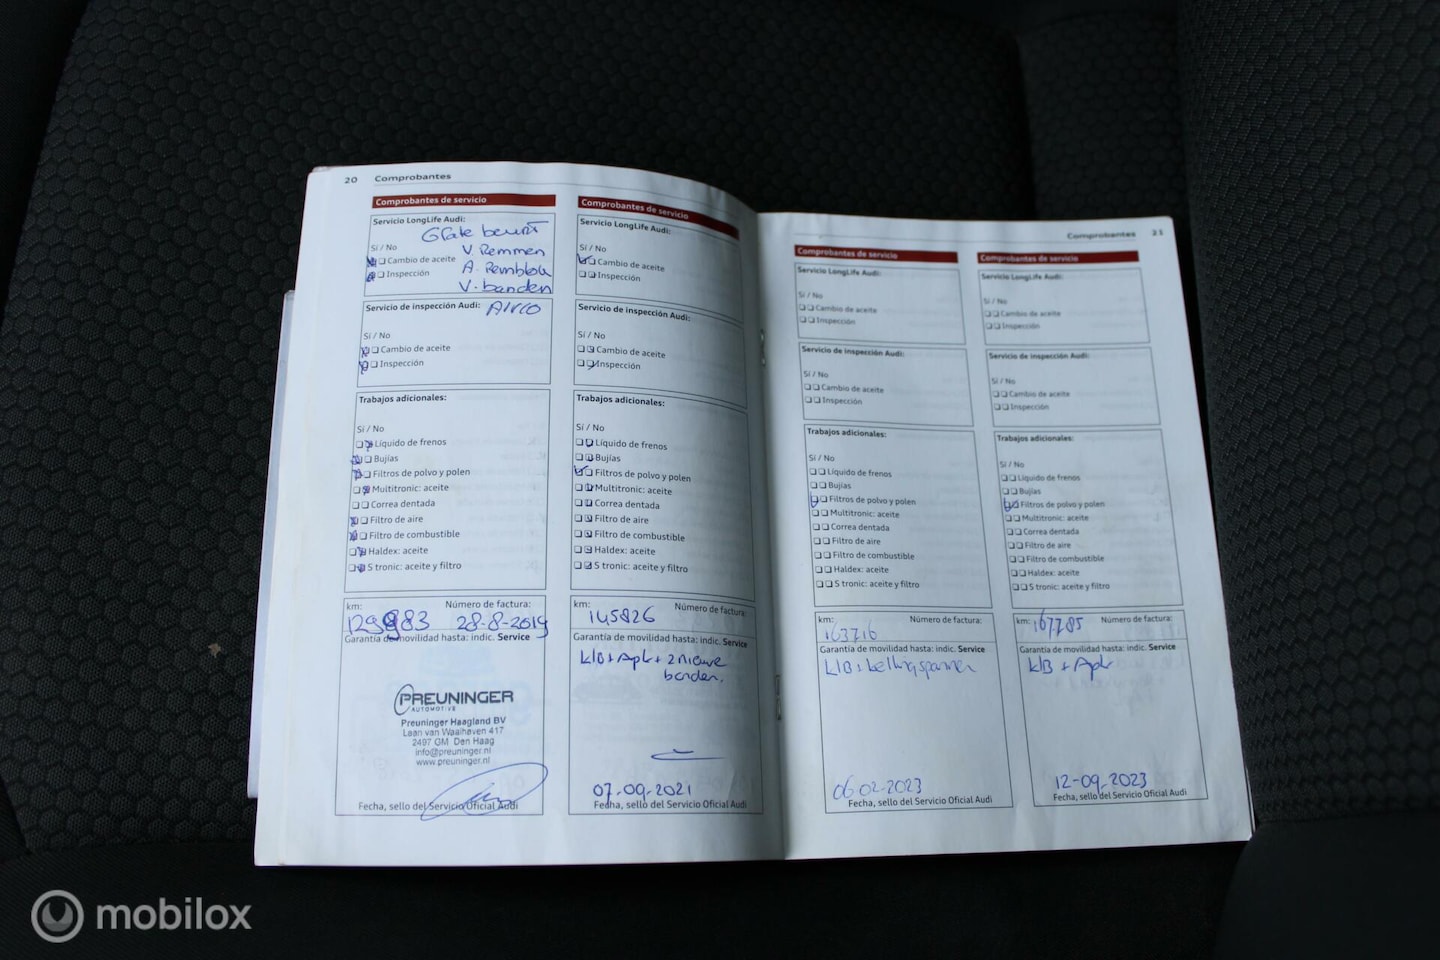 20 Comprobantes
Comprobantes de servicio
Servicio LongLife Audi:
Grote beurt
Sí / No
V. Remmen
Cambio de aceite
A. Remblok
Inspección
V. banden
Servicio de inspección Audi: AIRCO
Sí / No
Cambio de aceite
Inspección
Trabajos adicionales:
Sí / No
Líquido de frenos
Bujías
Filtros de polvo y polen
Multitronic: aceite
Correa dentada
Filtro de aire
Filtro de combustible
Haldex: aceite
S tronic: aceite y filtro
km: Número de factura:
129983 28-8-2019
Garantía de movilidad hasta: indic. Service
PREUNINGER
AUTOMOTIVE
Preuninger Haagland BV
Laan van Waalhaven 417
2497 GM Den Haag
info@preuninger.nl
www.preuninger.nl
Fecha, sello del Servicio Oficial Audi
Comprobantes de servicio
Servicio LongLife Audi:
Sí / No
Cambio de aceite
Inspección
Servicio de inspección Audi:
Sí / No
Cambio de aceite
Inspección
Trabajos adicionales:
Sí / No
Líquido de frenos
Bujías
Filtros de polvo y polen
Multitronic: aceite
Correa dentada
Filtro de aire
Filtro de combustible
Haldex: aceite
S tronic: aceite y filtro
km: Número de factura:
145826
Garantía de movilidad hasta: indic. Service
KlB + Apk + 2 nieuwe
banden.
07-09-2021
Fecha, sello del Servicio Oficial Audi
Comprobantes 21
Comprobantes de servicio
Servicio LongLife Audi:
Sí / No
Cambio de aceite
Inspección
Servicio de inspección Audi:
Sí / No
Cambio de aceite
Inspección
Trabajos adicionales:
Sí / No
Líquido de frenos
Bujías
Filtros de polvo y polen
Multitronic: aceite
Correa dentada
Filtro de aire
Filtro de combustible
Haldex: aceite
S tronic: aceite y filtro
km: Número de factura:
163716
Garantía de movilidad hasta: indic. Service
KlB +
06-02-2023
Fecha, sello del Servicio Oficial Audi
Comprobantes de servicio
Servicio LongLife Audi:
Sí / No
Cambio de aceite
Inspección
Servicio de inspección Audi:
Sí / No
Cambio de aceite
Inspección
Trabajos adicionales:
Sí / No
Líquido de frenos
Bujías
Filtros de polvo y polen
Multitronic: aceite
Correa dentada
Filtro de aire
Filtro de combustible
Haldex: aceite
S tronic: aceite y filtro
km: 167785 Número de factura:
Garantía de movilidad hasta: indic. Service
KlB + Apk
12-09-2023
Fecha, sello del Servicio Oficial Audi
mobilox